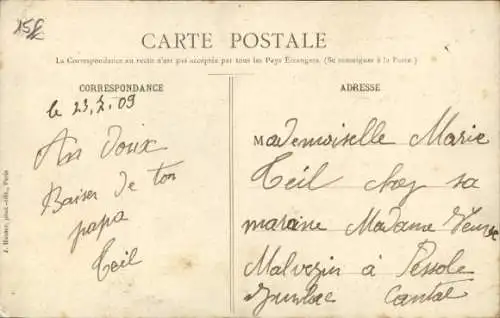 15f
CARTE POSTALE
La Correspondance au recto n'est pas acceptée par tous les Pays Etrangers. (Se renseigner à la Poste.)
CORRESPONDANCE
le 23.7.09
Un doux
Baiser de ton
papa
Teil
J. Hauser, phot.-édit., Paris
ADRESSE
Mademoiselle Marie
Teil chez sa
maraine Madame Veuve
Malvezin à
Cantal